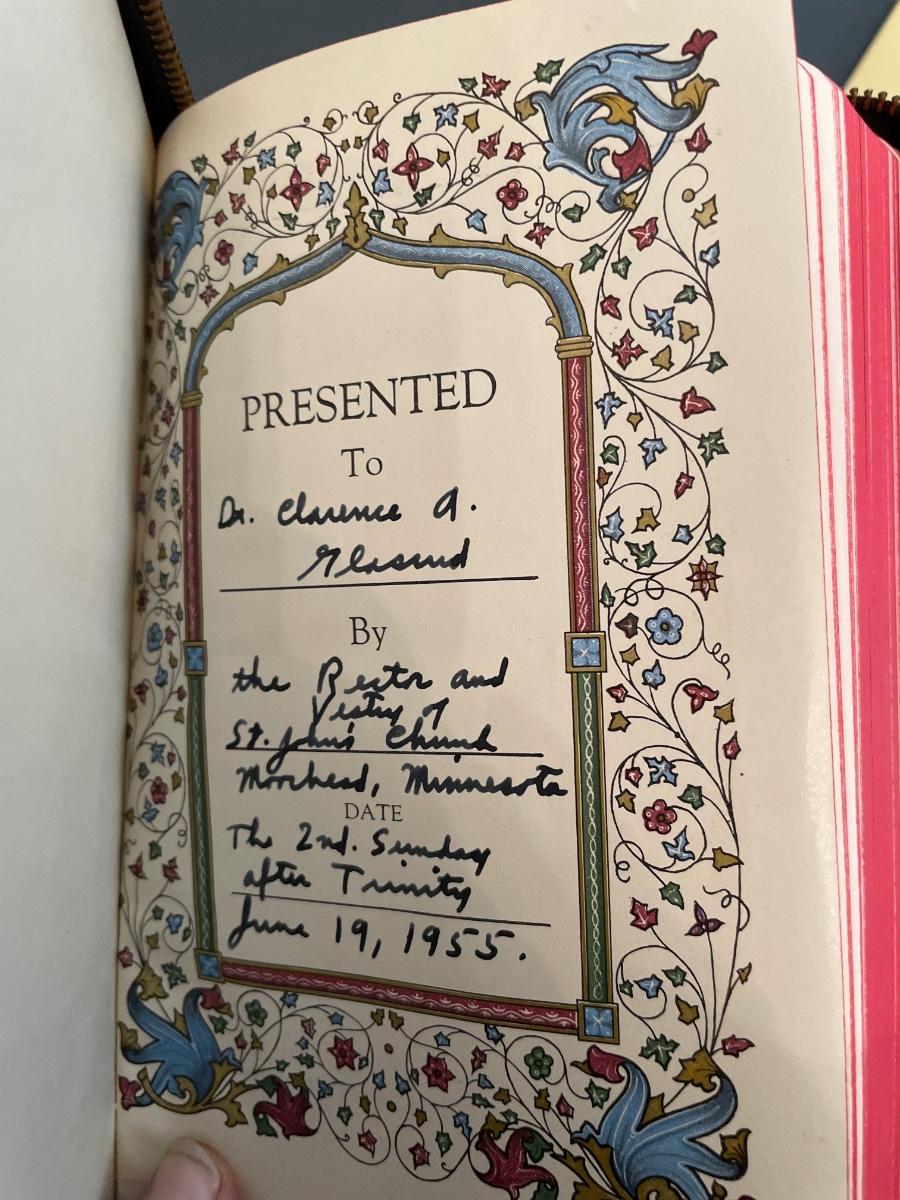 PRESENTED
To
Dr. Clarence A.
Glasrud
By
the Rector and
Vestry of
St. John's Church
Moorhead, Minnesota
DATE
The 2nd. Sunday
after Trinity
June 19, 1955.